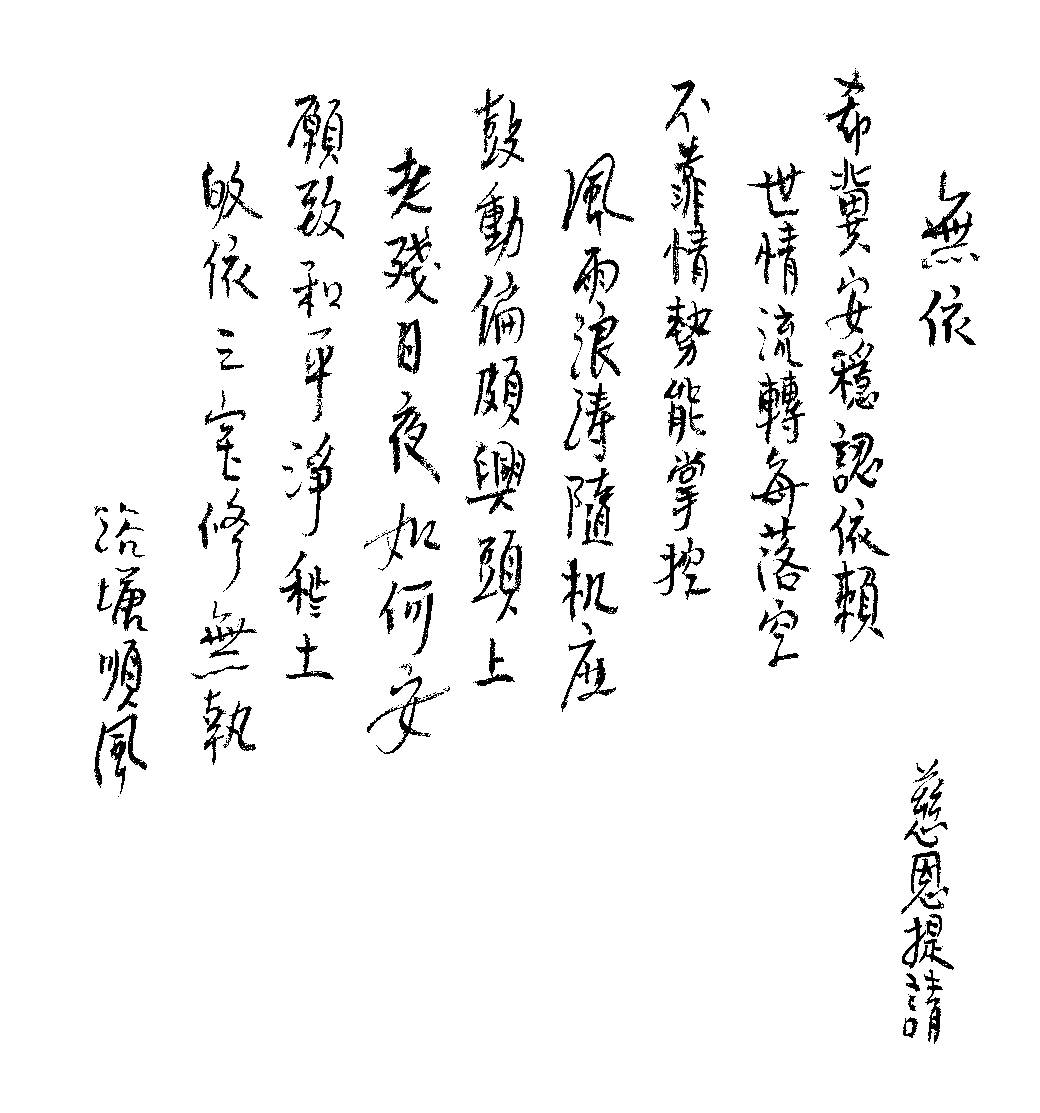 無依
慈恩提請
希冀安穩認依賴
世情流轉每落空
不靠情勢能掌控
風雨浪濤隨机應
鼓動偏頗興頭上
老殘日夜如何安
願致和平淨穢土
皈依三宝修無執
浴塘順風